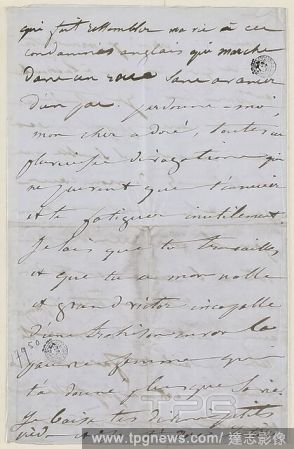 qui fait ressembler ma vie à ces
condamnés anglais qui marche
dans un roue sans avancer
d'un pas. pardonne-moi,
mon cher adoré, toutes ces
divagations qui
ne peuvent que t'ennuier
et te fatiguer inutilement.
Je sais que tu travailles
et que tu es mon noble
et grand victor incapable
d'une trahison envers la
pauvre femme que
t'a donné plus que sa vie
Je baise tes deux petits
pieds
17950
TPG
www.tpgnews.com / 達志影像